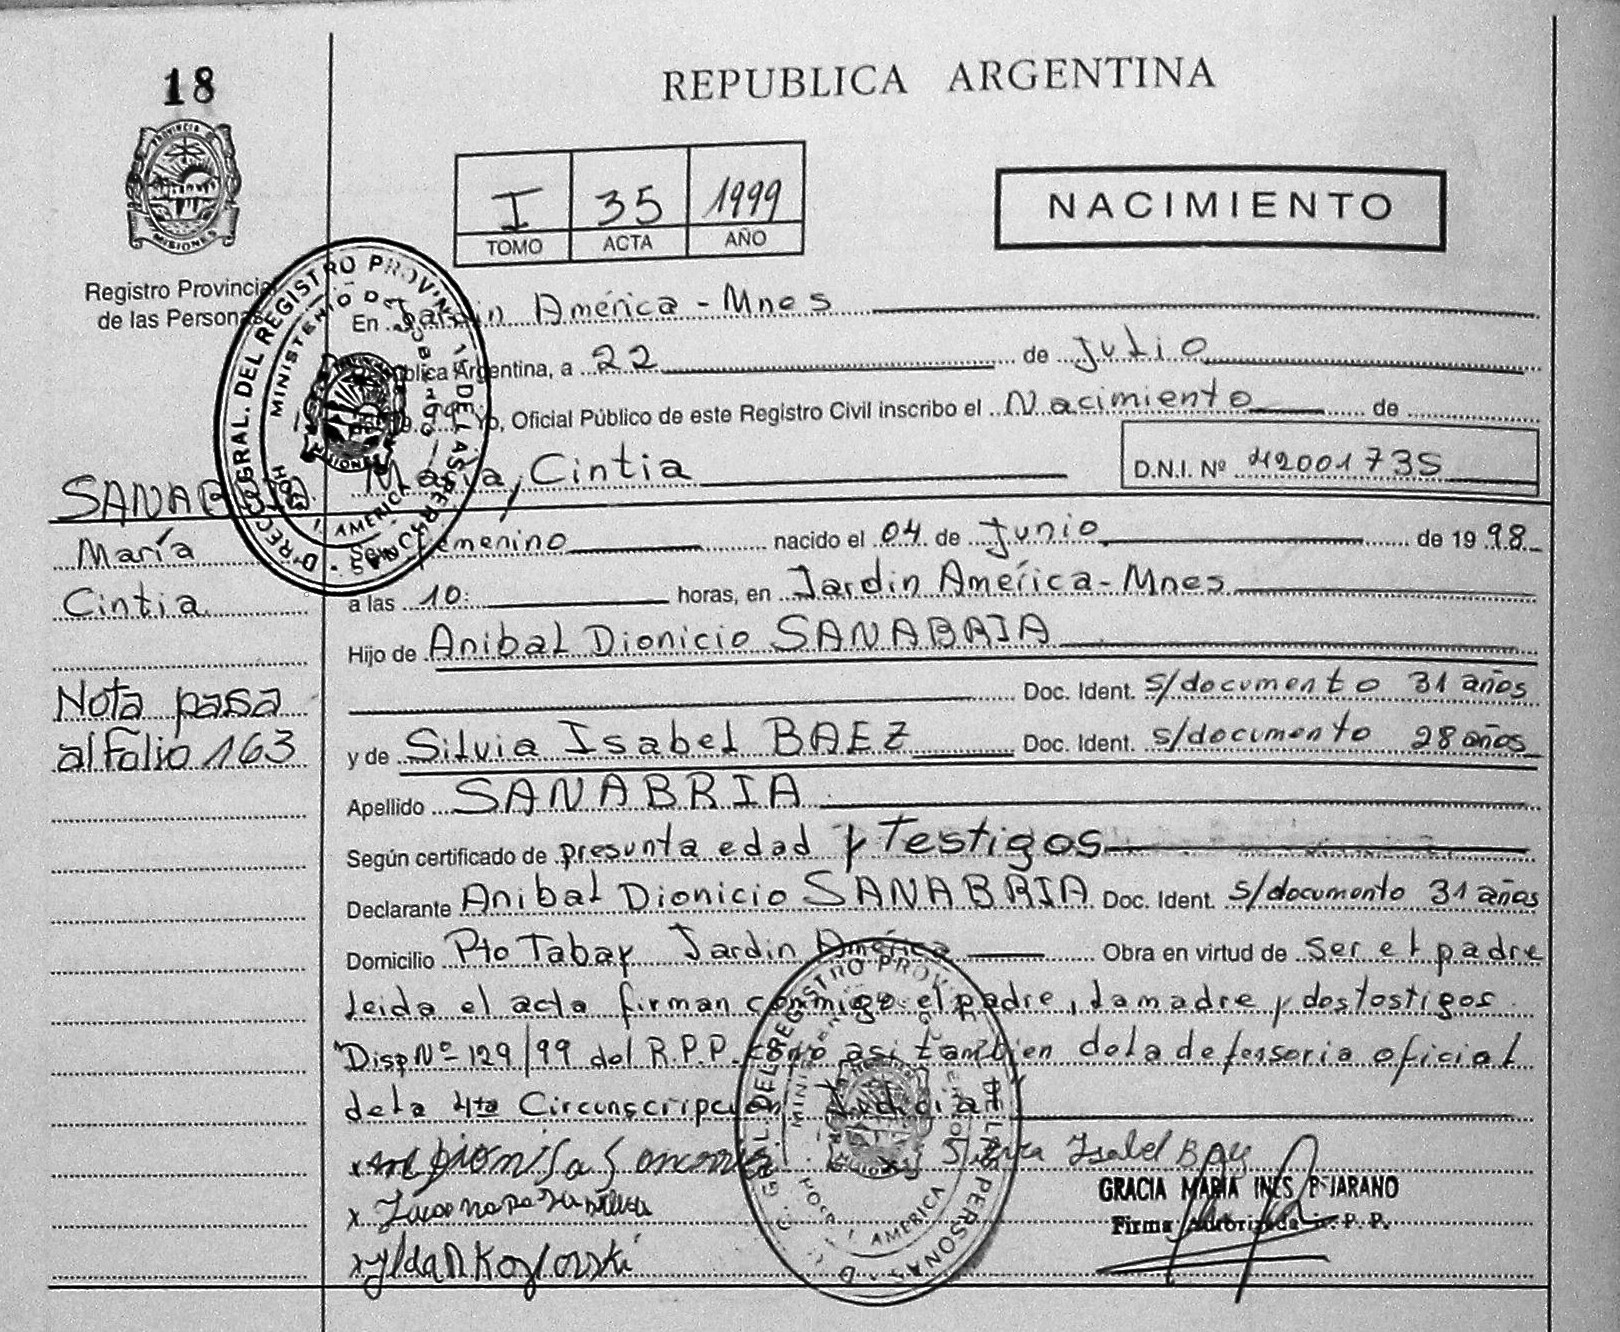 18
REPUBLICA ARGENTINA
PROVINCIA DE
MISIONES
I 35 1999
TOMO ACTA AÑO
NACIMIENTO
Registro Provincial
de las Personas
En Jardin América - Mnes
República Argentina, a 22 de Julio
de 19 99 Yo, Oficial Público de este Registro Civil inscribo el Nacimiento de
María, Cintia
D.N.I. Nº 42001735
SANABRIA
María
Cintia
Nota pasa
al Folio 163
Sexo femenino nacido el 04 de Junio de 19 98
a las 10: horas, en Jardin América - Mnes
Hijo de Anibal Dionicio SANABRIA
Doc. Ident. s/documento 31 años
y de Silvia Isabel BAEZ Doc. Ident. s/documento 28 años
Apellido SANABRIA
Según certificado de presunta edad y Testigos
Declarante Anibal Dionicio SANABRIA Doc. Ident. s/documento 31 años
Domicilio Pto Tabay Jardin América Obra en virtud de ser el padre
leida el acta firman conmigo el padre, la madre y los tostigos
Disp Nº 129/99 del R.P.P. como asi tambien de la defensoria oficial
de la 4ta Circunscripción Judicial
Isabel
GRACIA MARIA INES BEJARANO
Firma Autorizada R. P. P.
Kozlowski
DIRECC. GRAL. DEL REGISTRO PROVINCIAL DE LAS PERSONAS
MINISTERIO DE GOBIERNO
J. AMERICA
MISIONES
DIRECC. GRAL. DEL REGISTRO PROVINCIAL DE LAS PERSONAS
MINISTERIO DE GOBIERNO
J. AMERICA
MISIONES